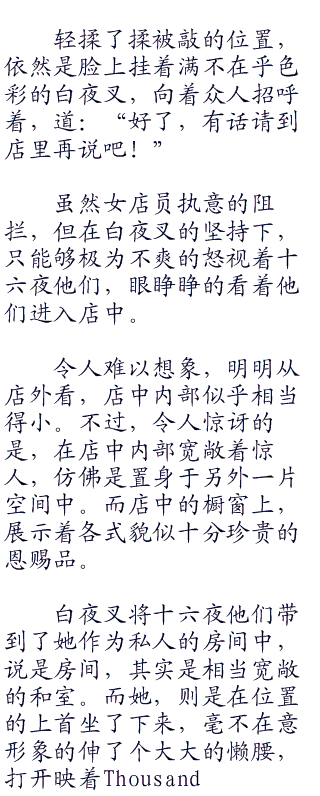 轻揉了揉被敲的位置，
依然是脸上挂着满不在乎色
彩的白夜叉，向着众人招呼
着，道：“好了，有话请到
店里再说吧！”
虽然女店员执意的阻
拦，但在白夜叉的坚持下，
只能够极为不爽的怒视着十
六夜他们，眼睁睁的看着他
们进入店中。
令人难以想象，明明从
店外看，店中内部似乎相当
得小。不过，令人惊讶的
是，在店中内部宽敞着惊
人，仿佛是置身于另外一片
空间中。而店中的橱窗上，
展示着各式貌似十分珍贵的
恩赐品。
白夜叉将十六夜他们带
到了她作为私人的房间中，
说是房间，其实是相当宽敞
的和室。而她，则是在位置
的上首坐了下来，毫不在意
形象的伸了个大大的懒腰，
打开映着Thousand